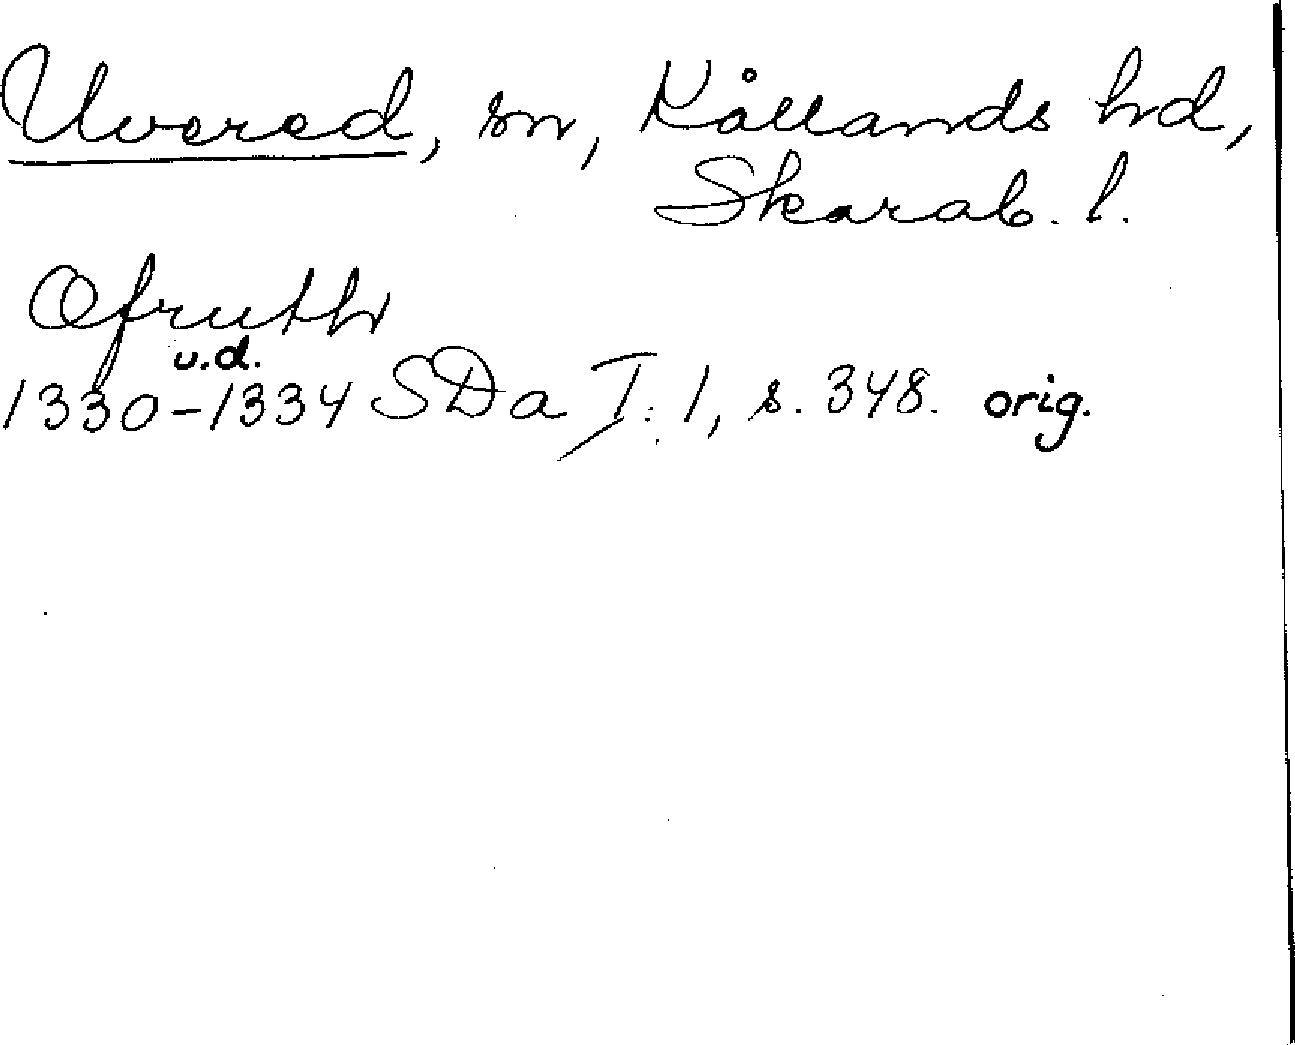 Uvered, sn, Kållands hd,
Skarab. l.
Ofruth
u.d.
1330-1334 SDa T. 1, s. 348. orig.